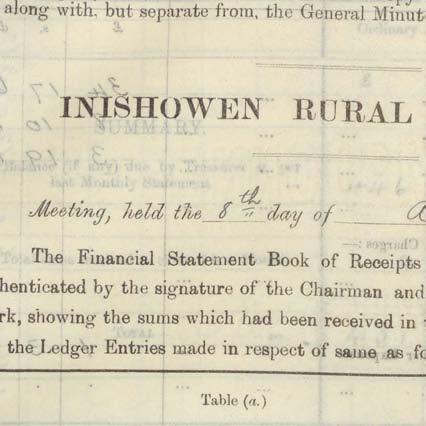 along with, but separate from, the General Minut
INISHOWEN RURAL
SUMMARY.
last Monthly Statement
Meeting, held the 8th day of
Charges :—
The Financial Statement Book of Receipts
henticated by the signature of the Chairman and
rk, showing the sums which had been received in
TOTAL
the Ledger Entries made in respect of same as fo
Table (a.)